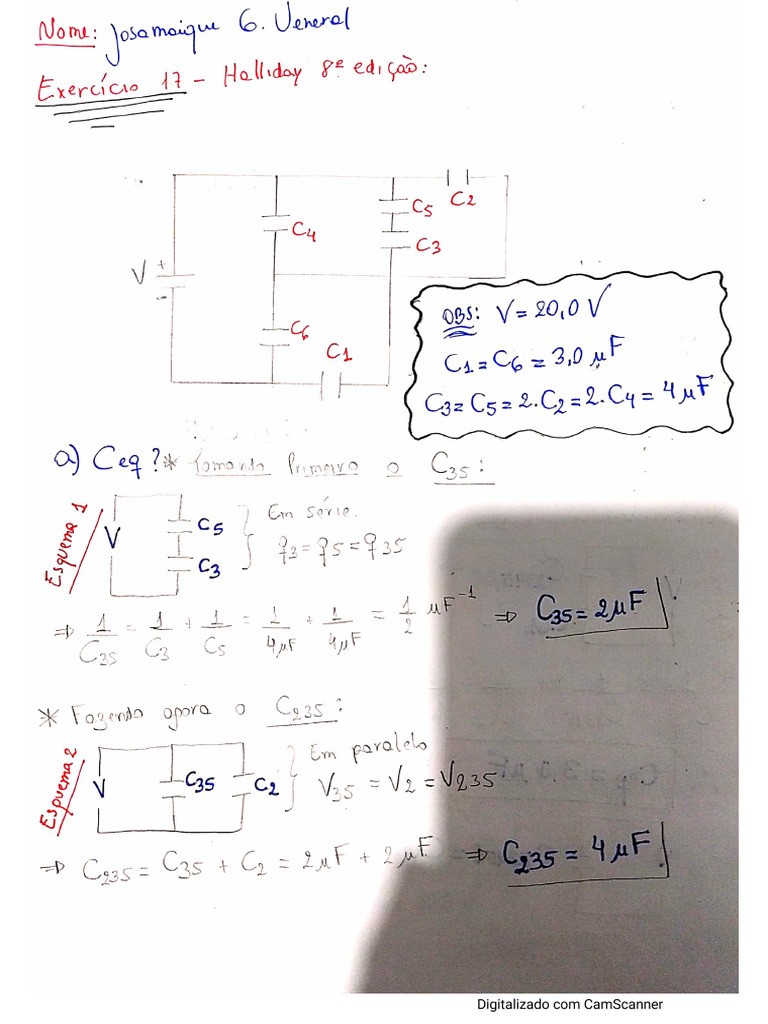 Nome: Josamaique G. Veneral
Exercício 17 - Halliday 8ª edição:
C2
C5
C4
C3
V + -
C6
C1
OBS: V = 20,0 V
C1 = C6 = 3,0 μF
C3 = C5 = 2.C2 = 2.C4 = 4 μF
a) Ceq? * Tomando Primeiro o C35:
Esquema 1
V
C5
C3
Em série.
q3 = q5 = q35
⇒ 1/C35 = 1/C3 + 1/C5 = 1/4μF + 1/4μF = 1/2 μF⁻¹ ⇒ C35 = 2μF
* Fazendo agora o C235:
Esquema 2
V
C35
C2
Em paralelo
V35 = V2 = V235
⇒ C235 = C35 + C2 = 2μF + 2μF ⇒ C235 = 4μF
Digitalizado com CamScanner